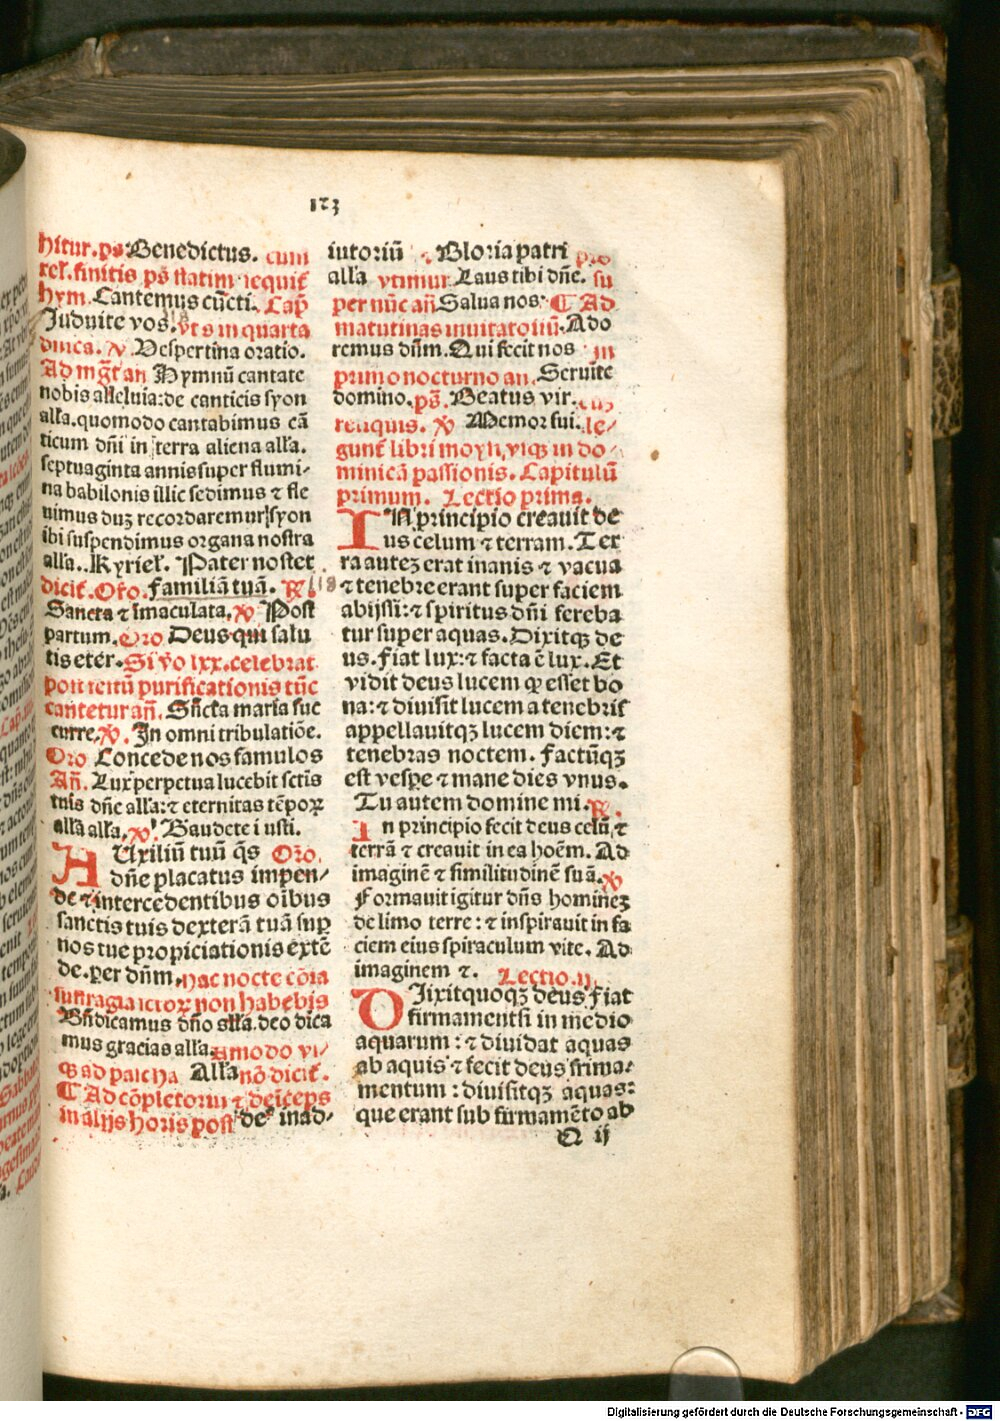 123
hitur. ps Benedictus. cum
rel̄. finitis ps̄ statim sequit̄
hym. Cantemus cūcti. Cap̄
Induite vos. vt s in quarta
dnica. ꝟ. Vespertina oratio.
Ad mḡt an Hymnū cantate
nobis alleluia: de canticis syon
alła. quomodo cantabimus cā
ticum dn̄i in terra aliena alła.
septuaginta annis super flumi-
na babilonis illic sedimus ⁊ fle
uimus duꝫ recordaremur syon
ibi suspendimus organa nostra
alła. Kyriel̄. Pater noster
dicit̄. Oro. Familiā tuā. ℞
Sancta ⁊ imaculata. ꝟ Post
partum. Oro Deus qui salu
tis eter. Si vo lxx. celebrat
post festū purificationis tūc
cantetur an̄. Sn̄cta maria suc
curre. ꝟ. In omni tribulatiōe.
Oro Concede nos famulos
An̄. Lux perpetua lucebit sctis
tuis dn̄e alła: ⁊ eternitas tēpoꝝ
alła alła. ꝟ. Gaudete iusti.
AUxiliū tuū q̄s Oro.
dn̄e placatus impen-
de ⁊ intercedentibus oībus
sanctis tuis dexterā tuā sup
nos tue propiciationis extē
de. per dn̄m. hac nocte cōia
suffragia ictoꝝ non habebis
Bn̄dicamus dn̄o alła. deo dica
mus gracias alła. amodo vs-
qꝫ ad pascha Alła nō dicit̄.
¶ Ad cōpletoriū ⁊ deīceps
in alijs horis post de⁹ in ad-
iutoriū Gloria patri pro
alła vtimur. Laus tibi dn̄e. su
per nūc an̄ Salua nos. ¶ Ad
matutinas inuitatoriū. Ado
remus dn̄m. Qui fecit nos in
primo nocturno an. Seruite
domino. ps̄. Beatus vir. cuꝫ
reliquis. ꝟ Memor fui. le-
gunt̄ libri moysi, vsqꝫ in do-
minicā passionis. Capitulū
primum. Lectio prima.
IN principio creauit de
us celum ⁊ terram. Ter
ra auteꝫ erat inanis ⁊ vacua
118 ⁊ tenebre erant super faciem
abissi: ⁊ spiritus dn̄i fereba
tur super aquas. Dixitqꝫ de
us. Fiat lux: ⁊ facta ē lux. Et
vidit deus lucem ꝙ esset bo
na: ⁊ diuisit lucem a tenebris
appellauitqꝫ lucem diem: ⁊
tenebras noctem. Factūqꝫ
est vespe ⁊ mane dies vnus.
Tu autem domine mi. ℞.
In principio fecit deus celū, ⁊
terrā ⁊ creauit in ea hoēm. Ad
imaginē ⁊ similitudinē suā. ꝟ
Formauit igitur dn̄s homineꝫ
de limo terre: ⁊ inspirauit in fa
ciem eius spiraculum vite. Ad
imaginem ⁊. Lectio. ij.
DIxit quoqꝫ deus Fiat
firmamentū in medio
aquarum: ⁊ diuidat aquas
ab aquis ⁊ fecit deus firma-
mentum: diuisitqꝫ aquas:
que erant sub firmamēto ab
Q ij
Digitalisierung gefördert durch die Deutsche Forschungsgemeinschaft - DFG